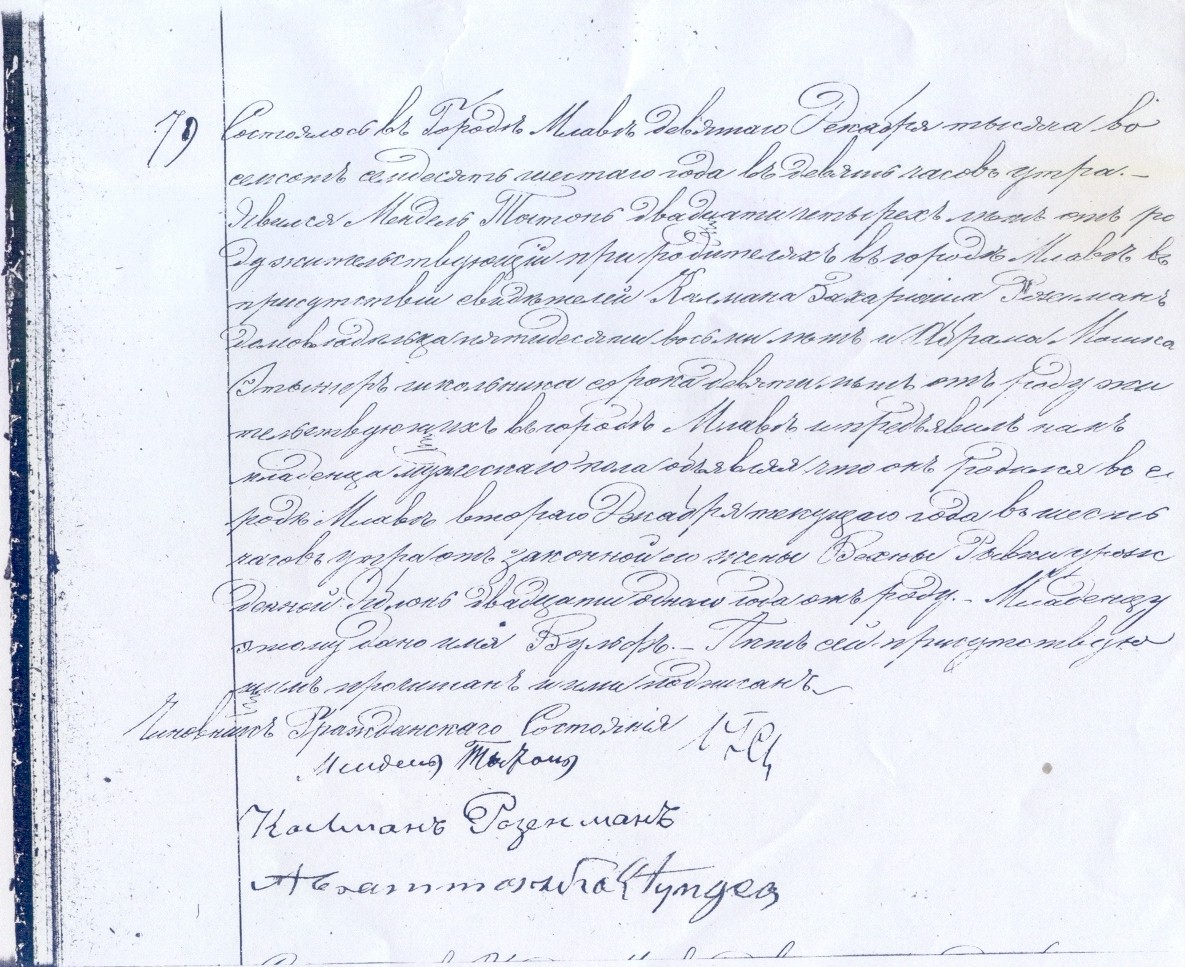 79 Состоялось въ Городѣ Млавѣ девятаго Декабря тысяча во
семсотъ семдесятъ шестаго года въ девять часовъ утра.—
Явился Мендель двадцати четырехъ лѣтъ отъ ро
ду жительствующій при родителяхъ въ городѣ Млавѣ въ
присутствіи свидѣтелей Калмана Захаріаша Розенманъ
домовладѣльца пятидесяти восьми лѣтъ и Абрама Мошка
школьника сорока девяти лѣтъ отъ роду жи
тельствующихъ въ городѣ Млавѣ и предъявилъ намъ
младенца мужескаго пола объявляя что онъ родился во
родѣ Млавѣ втораго Декабря текущаго года въ шесть
часовъ утра отъ законной его жены Рывки урож
денной двадцати одного года отъ роду.— Младенцу
этому дано имя — Актъ сей присутствую
щимъ прочитанъ и ими подписанъ.
Чиновникъ Гражданскаго Состоянія
Мендель
Калманъ Розенманъ